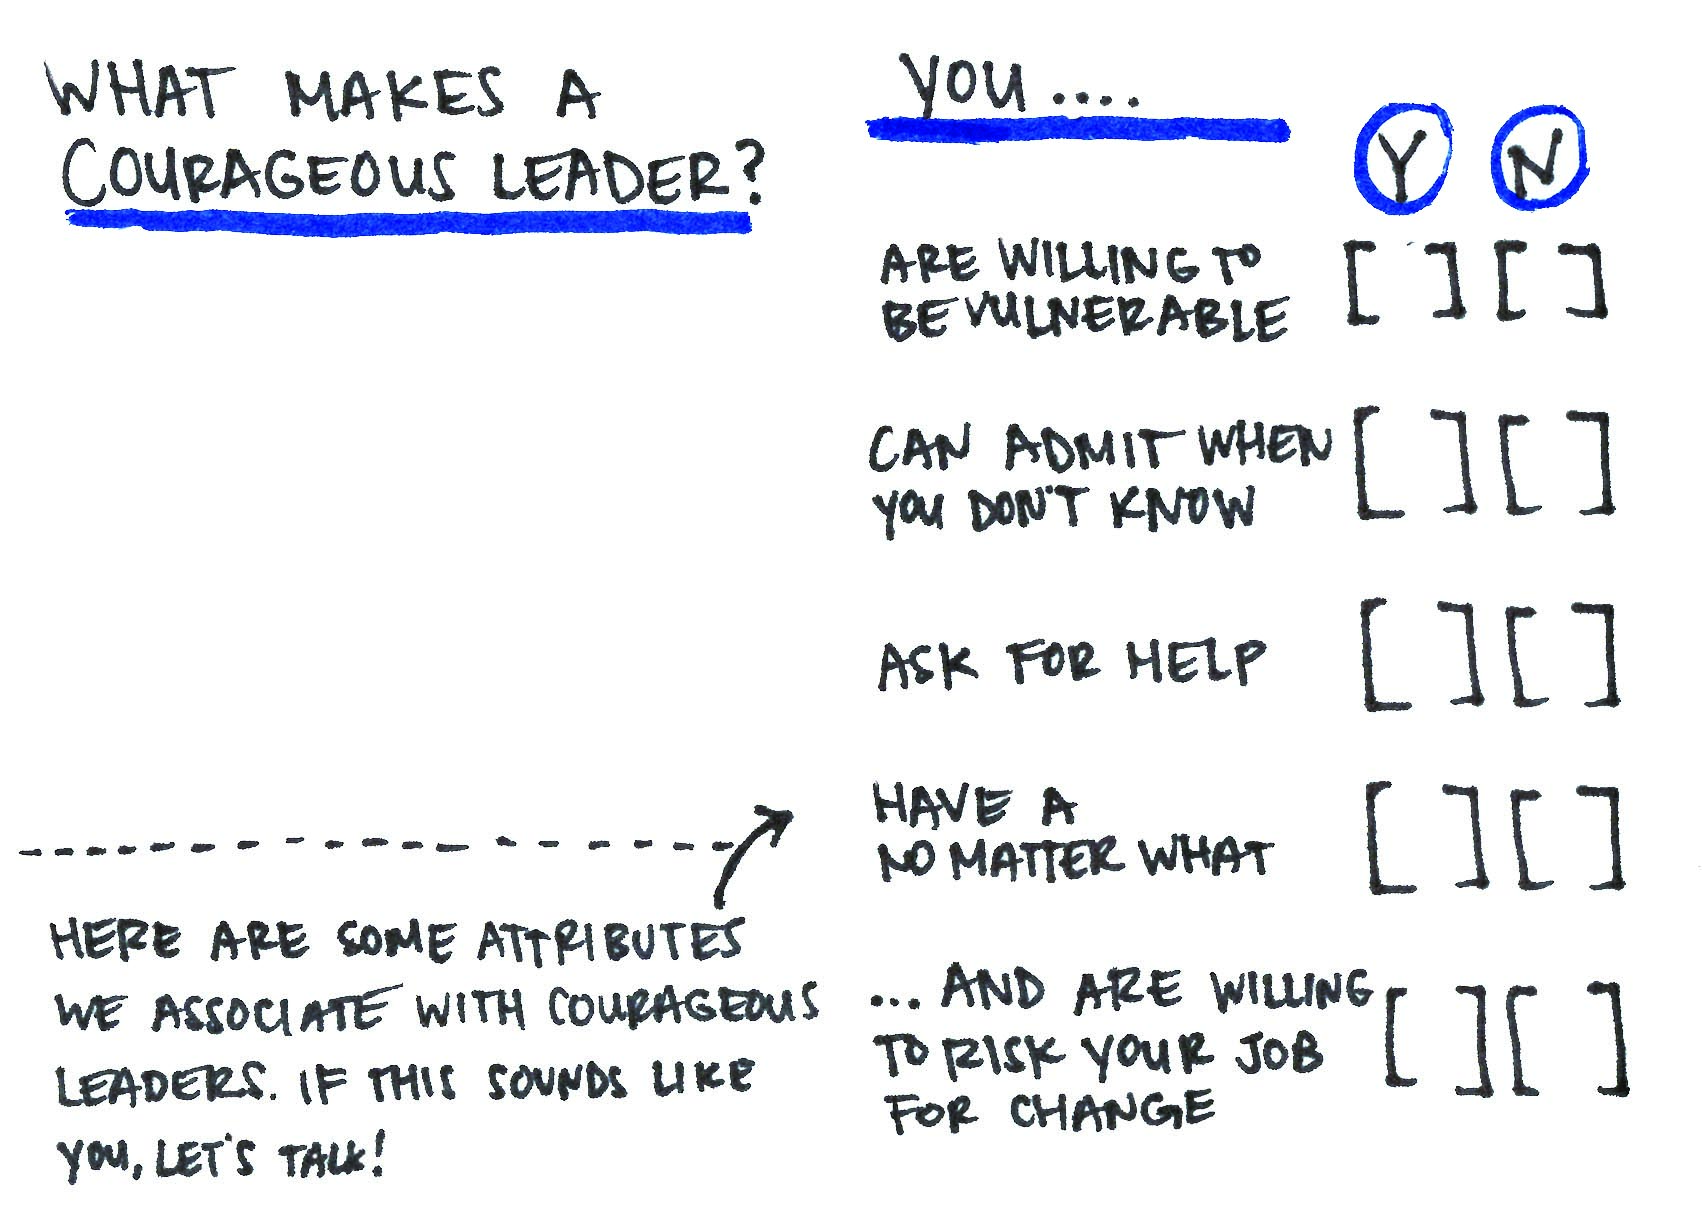 WHAT MAKES A
COURAGEOUS LEADER?
HERE ARE SOME ATTRIBUTES
WE ASSOCIATE WITH COURAGEOUS
LEADERS. IF THIS SOUNDS LIKE
YOU, LET'S TALK!
YOU....
Y N
ARE WILLING TO
BE VULNERABLE
[ ] [ ]
CAN ADMIT WHEN
YOU DON'T KNOW
[ ] [ ]
ASK FOR HELP [ ] [ ]
HAVE A
NO MATTER WHAT
[ ] [ ]
... AND ARE WILLING
TO RISK YOUR JOB
FOR CHANGE
[ ] [ ]